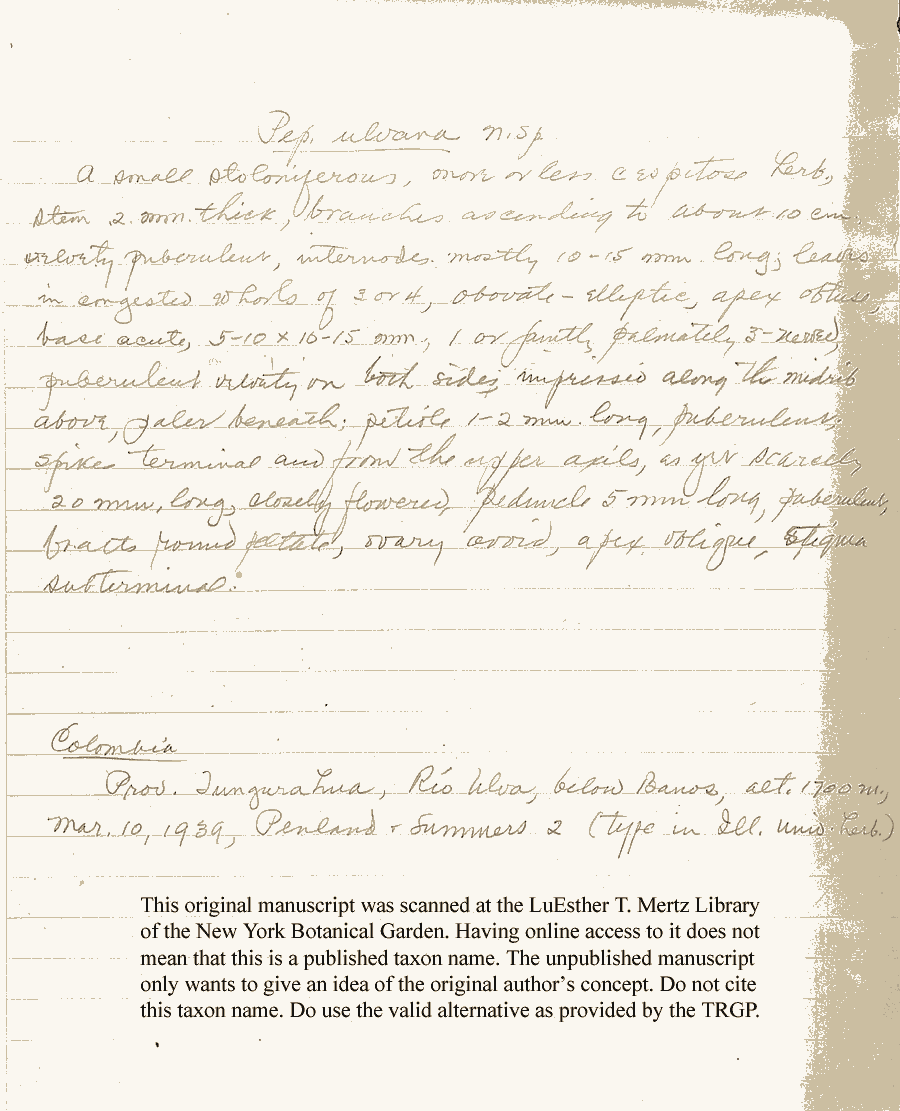 Pep. ulvana n. sp.
A small stoloniferous, more or less cespitose herb,
stem 2 mm. thick, branches ascending to about 10 cm.
velvety puberulent, internodes mostly 10-15 mm. long; leaves
in congested whorls of 3 or 4, obovate-elliptic, apex obtuse,
base acute, 5-10 x 10-15 mm., 1 or faintly palmately 3-nerved,
puberulent velvety on both sides, impressed along the midrib
above, paler beneath; petiole 1-2 mm. long, puberulent;
spikes terminal and from the upper axils, as yet scarcely
20 mm. long, closely flowered, peduncle 5 mm long, puberulent,
bracts round peltate, ovary ovoid, apex oblique, stigma
subterminal.
Colombia
Prov. Tungurahua, Río Ulva, below Banos, alt. 1700 m.,
Mar. 10, 1939, Penland & Summers 2 (type in Ill. Univ. herb.)
This original manuscript was scanned at the LuEsther T. Mertz Library
of the New York Botanical Garden. Having online access to it does not
mean that this is a published taxon name. The unpublished manuscript
only wants to give an idea of the original author's concept. Do not cite
this taxon name. Do use the valid alternative as provided by the TRGP.